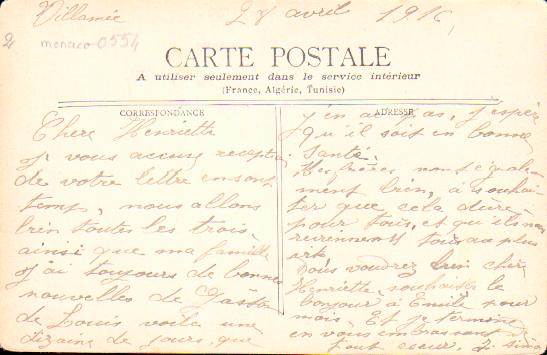 Villamée 28 avril 1916
monaco 0554
CARTE POSTALE
A utiliser seulement dans le service intérieur
(France, Algérie, Tunisie)
CORRESPONDANCE
Chere Henriette
Je vous accuse reception
de votre lettre en son
temp, nous allons
bien toutes les trois
ainsi que ma famille
J'ai toujours de bonnes
nouvelles de
de Louis voila une
dizaine de jours que
ADRESSE
j'en ai pas, j'espère
qu'il soit en bonne
Santé.
Mes frères vont égale
ment bien, à souhai
ter que cela dure
pour tous, et qu'ils nous
reviennent tous au plus
Vous voudrez bien chère
Henriette souhaiter le
bonjour à Emile pour
mois. Et je termine
en vous embrassant de
tout coeur.